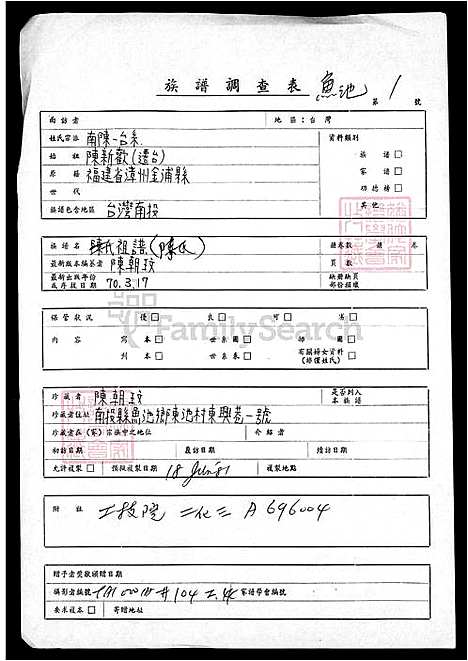 族譜調查表 魚池 1
第 號
面訪者 地區：台灣
姓氏宗派 南陳-台系 資料類別
始祖 陳新歡(遷台) 族譜 □
原籍 福建省漳州金浦縣 家譜 □
世代 功德榜 □
族譜包含地區 台灣南投 其他
族譜名 陳氏祖譜(陳氏) 總卷數 卷
最新版本編纂者 陳朝玟 頁數
最新出版年份 缺冊缺頁
或存放日期 70.3.17 部份損壞
FamilySearch
保管狀況 優 □ 良 □ 可 □ 劣 □
內容 寫本 □ 世系圖 □ 師圖 □
刊本 □ 世系表 □ 有關婦女資料 □
(節僅姓氏)
珍藏者 陳朝玟 是否列入
本族譜
珍藏者住址 南投縣魚池鄉東池村東興巷一號
珍藏者在(家)宗族中之地位 介紹者
初訪日期 覆訪日期 續訪日期
允許複製 □ 預擬複製日期 18 Jun 81 複製地點
附註 工技院 二化三 A 696004
贈予者獎狀頒贈日期
攝影者編號 #104 家譜學會編號
要求複本 □ 寄贈地址